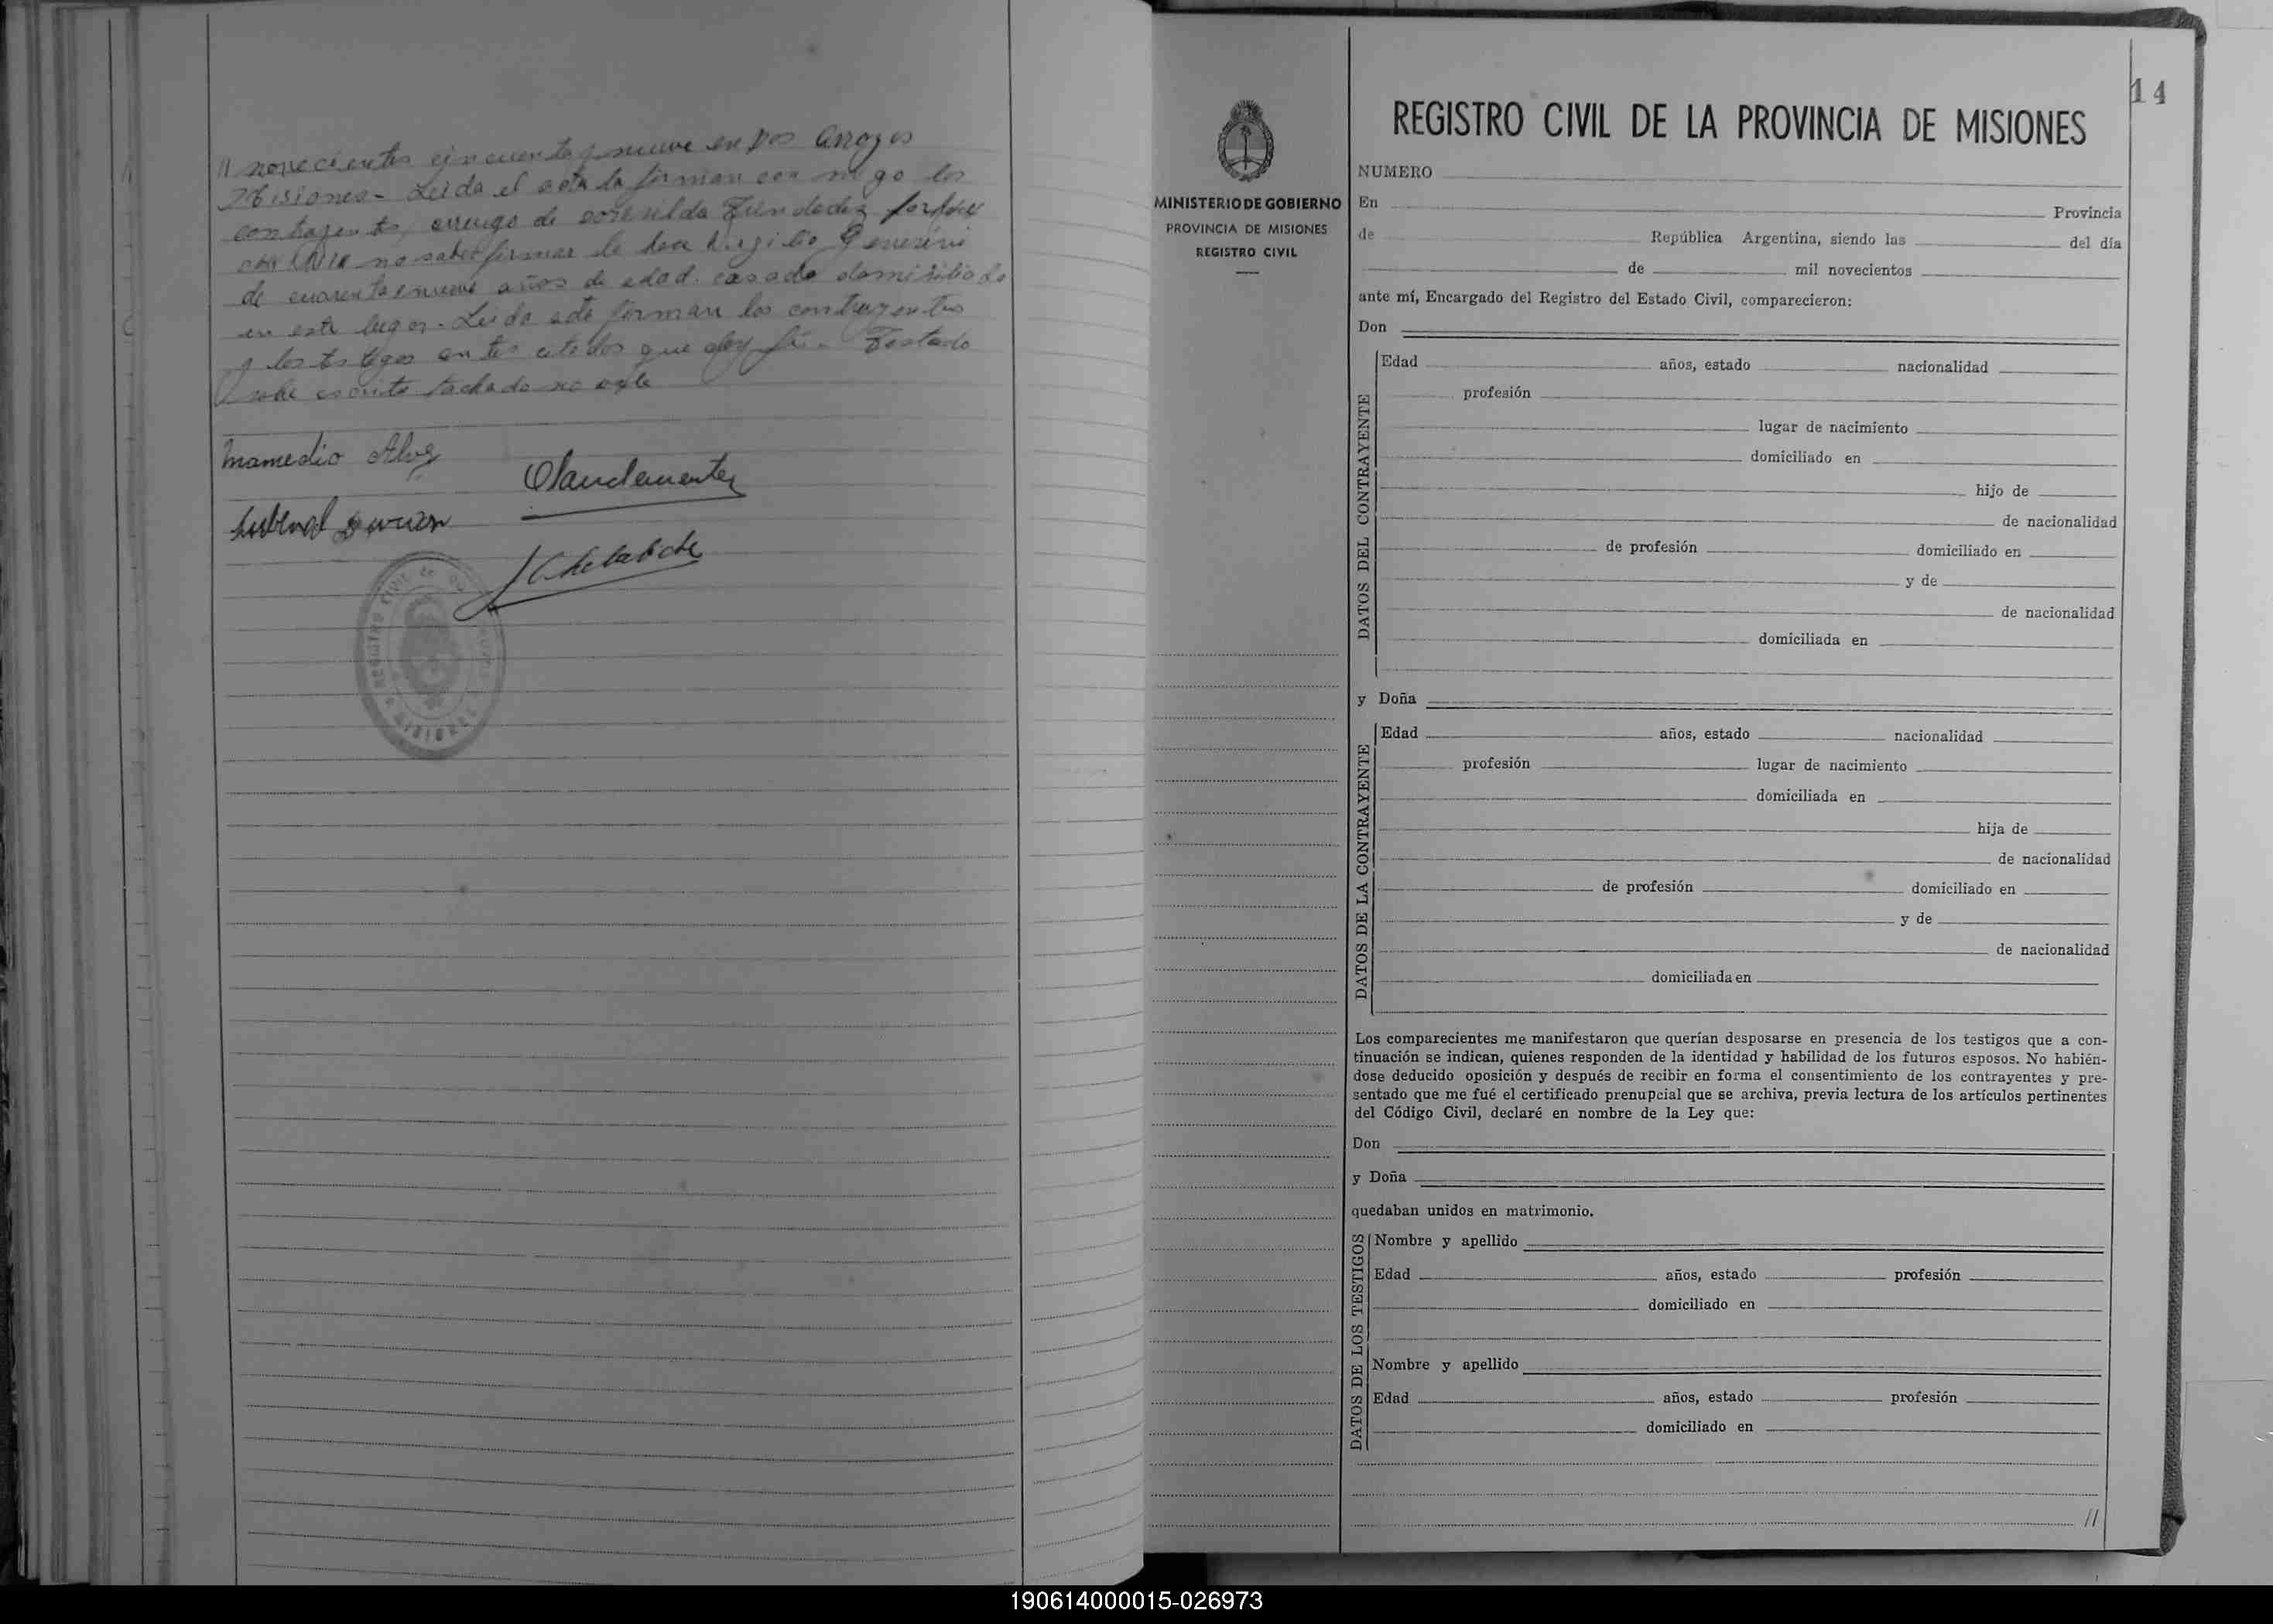 // novecientos cincuenta y nueve en Dos Arroyos
Misiones - Leida el acta la firman con migo los
contrayentes, arruego de
no saber firmar lo hace Virgilio
de cuarenta y nueve años de edad. casado domisiliado
en este lugar. Leida acta firman los contrayentes
y los testigos antes citados que doy fé. - Testado
sobre escrito tachado no vale
Mamedio Alvez
14
REGISTRO CIVIL DE LA PROVINCIA DE MISIONES
MINISTERIO DE GOBIERNO
PROVINCIA DE MISIONES
REGISTRO CIVIL
NUMERO
En Provincia
de República Argentina, siendo las del día
de mil novecientos
ante mí, Encargado del Registro del Estado Civil, comparecieron:
Don
DATOS DEL CONTRAYENTE
Edad años, estado nacionalidad
profesión
lugar de nacimiento
domiciliado en
hijo de
de nacionalidad
de profesión domiciliado en
y de
de nacionalidad
domiciliada en
y Doña
DATOS DE LA CONTRAYENTE
Edad años, estado nacionalidad
profesión lugar de nacimiento
domiciliada en
hija de
de nacionalidad
de profesión domiciliado en
y de
de nacionalidad
domiciliada en
Los comparecientes me manifestaron que querían desposarse en presencia de los testigos que a con-
tinuación se indican, quienes responden de la identidad y habilidad de los futuros esposos. No habién-
dose deducido oposición y después de recibir en forma el consentimiento de los contrayentes y pre-
sentado que me fué el certificado prenupcial que se archiva, previa lectura de los artículos pertinentes
del Código Civil, declaré en nombre de la Ley que:
Don
y Doña
quedaban unidos en matrimonio.
DATOS DE LOS TESTIGOS
Nombre y apellido
Edad años, estado profesión
domiciliado en
Nombre y apellido
Edad años, estado profesión
domiciliado en
//
190614000015-026973